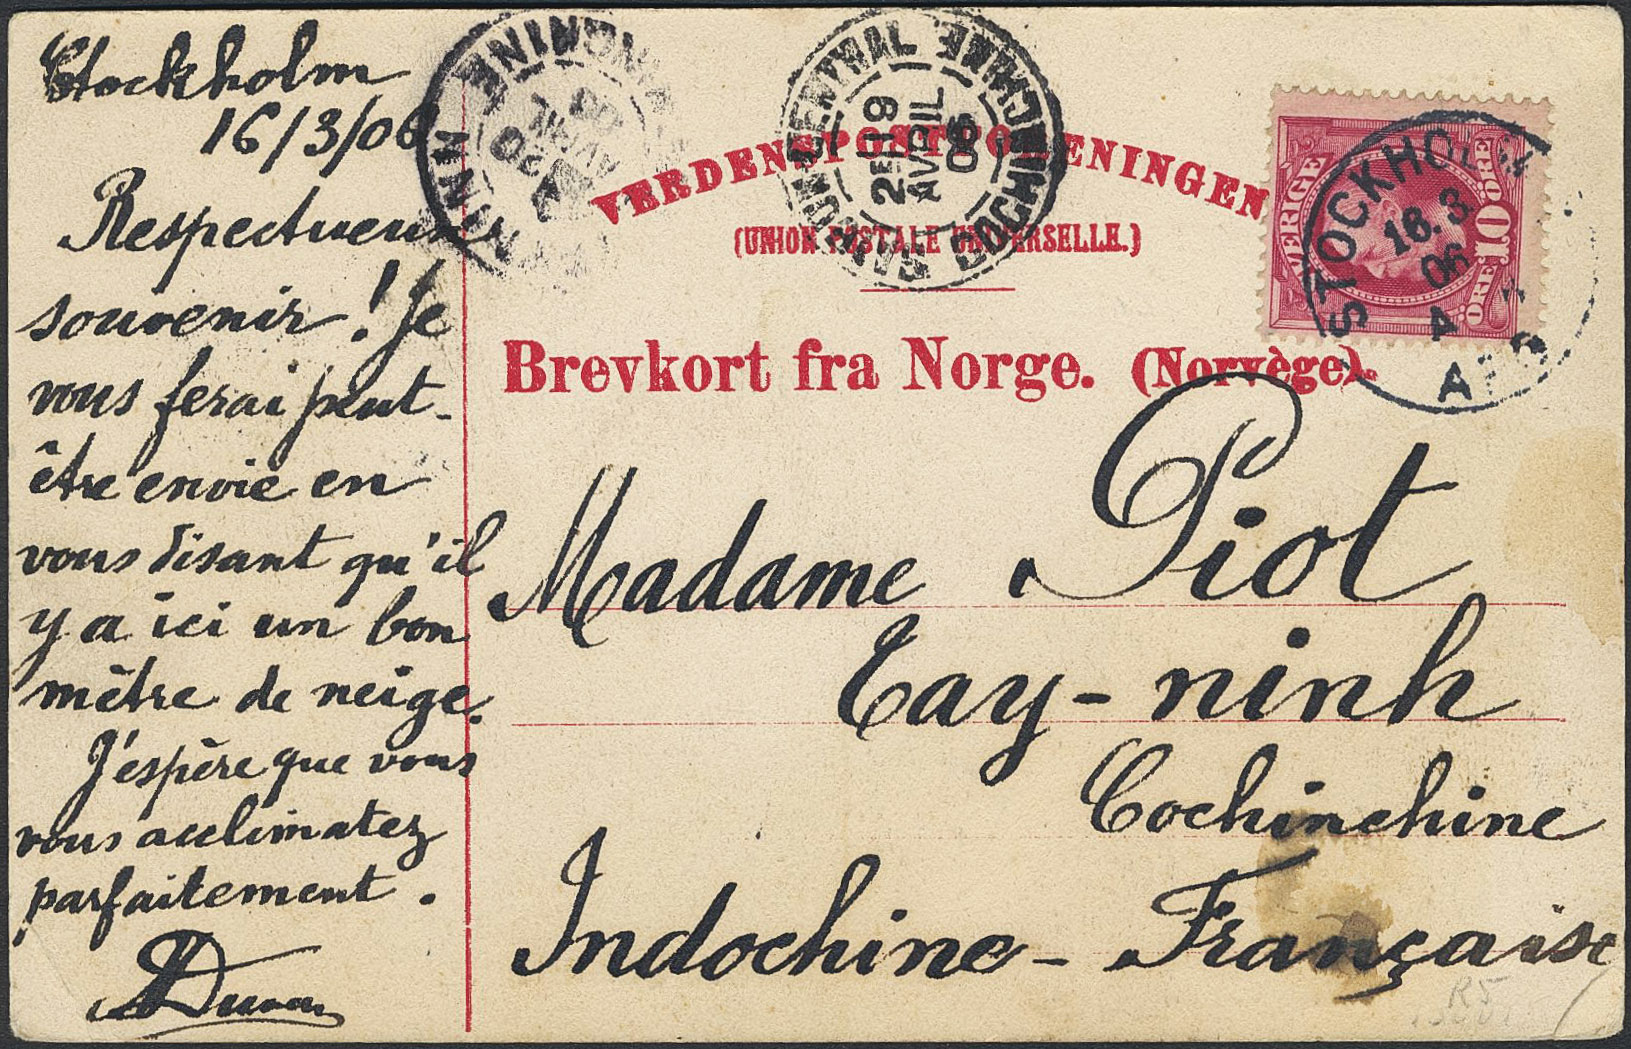 Stockholm
16/3/06
Respectueux
souvenir! Je
vous ferai peut-
être envie en
vous disant qu'il
y a ici un bon
mètre de neige.
J'espère que vous
vous acclimatez
parfaitement.
VERDENSPOSTFORENINGEN
(UNION POSTALE UNIVERSELLE.)
Brevkort fra Norge. (Norvège).
Madame Piot
Tay-ninh
Cochinchine
Indochine-Française
SVERIGE
10
ÖRE ÖRE
STOCKHOLM
16.3
06
A
COCHINCHINE
2E/19
AVRIL
06
R5